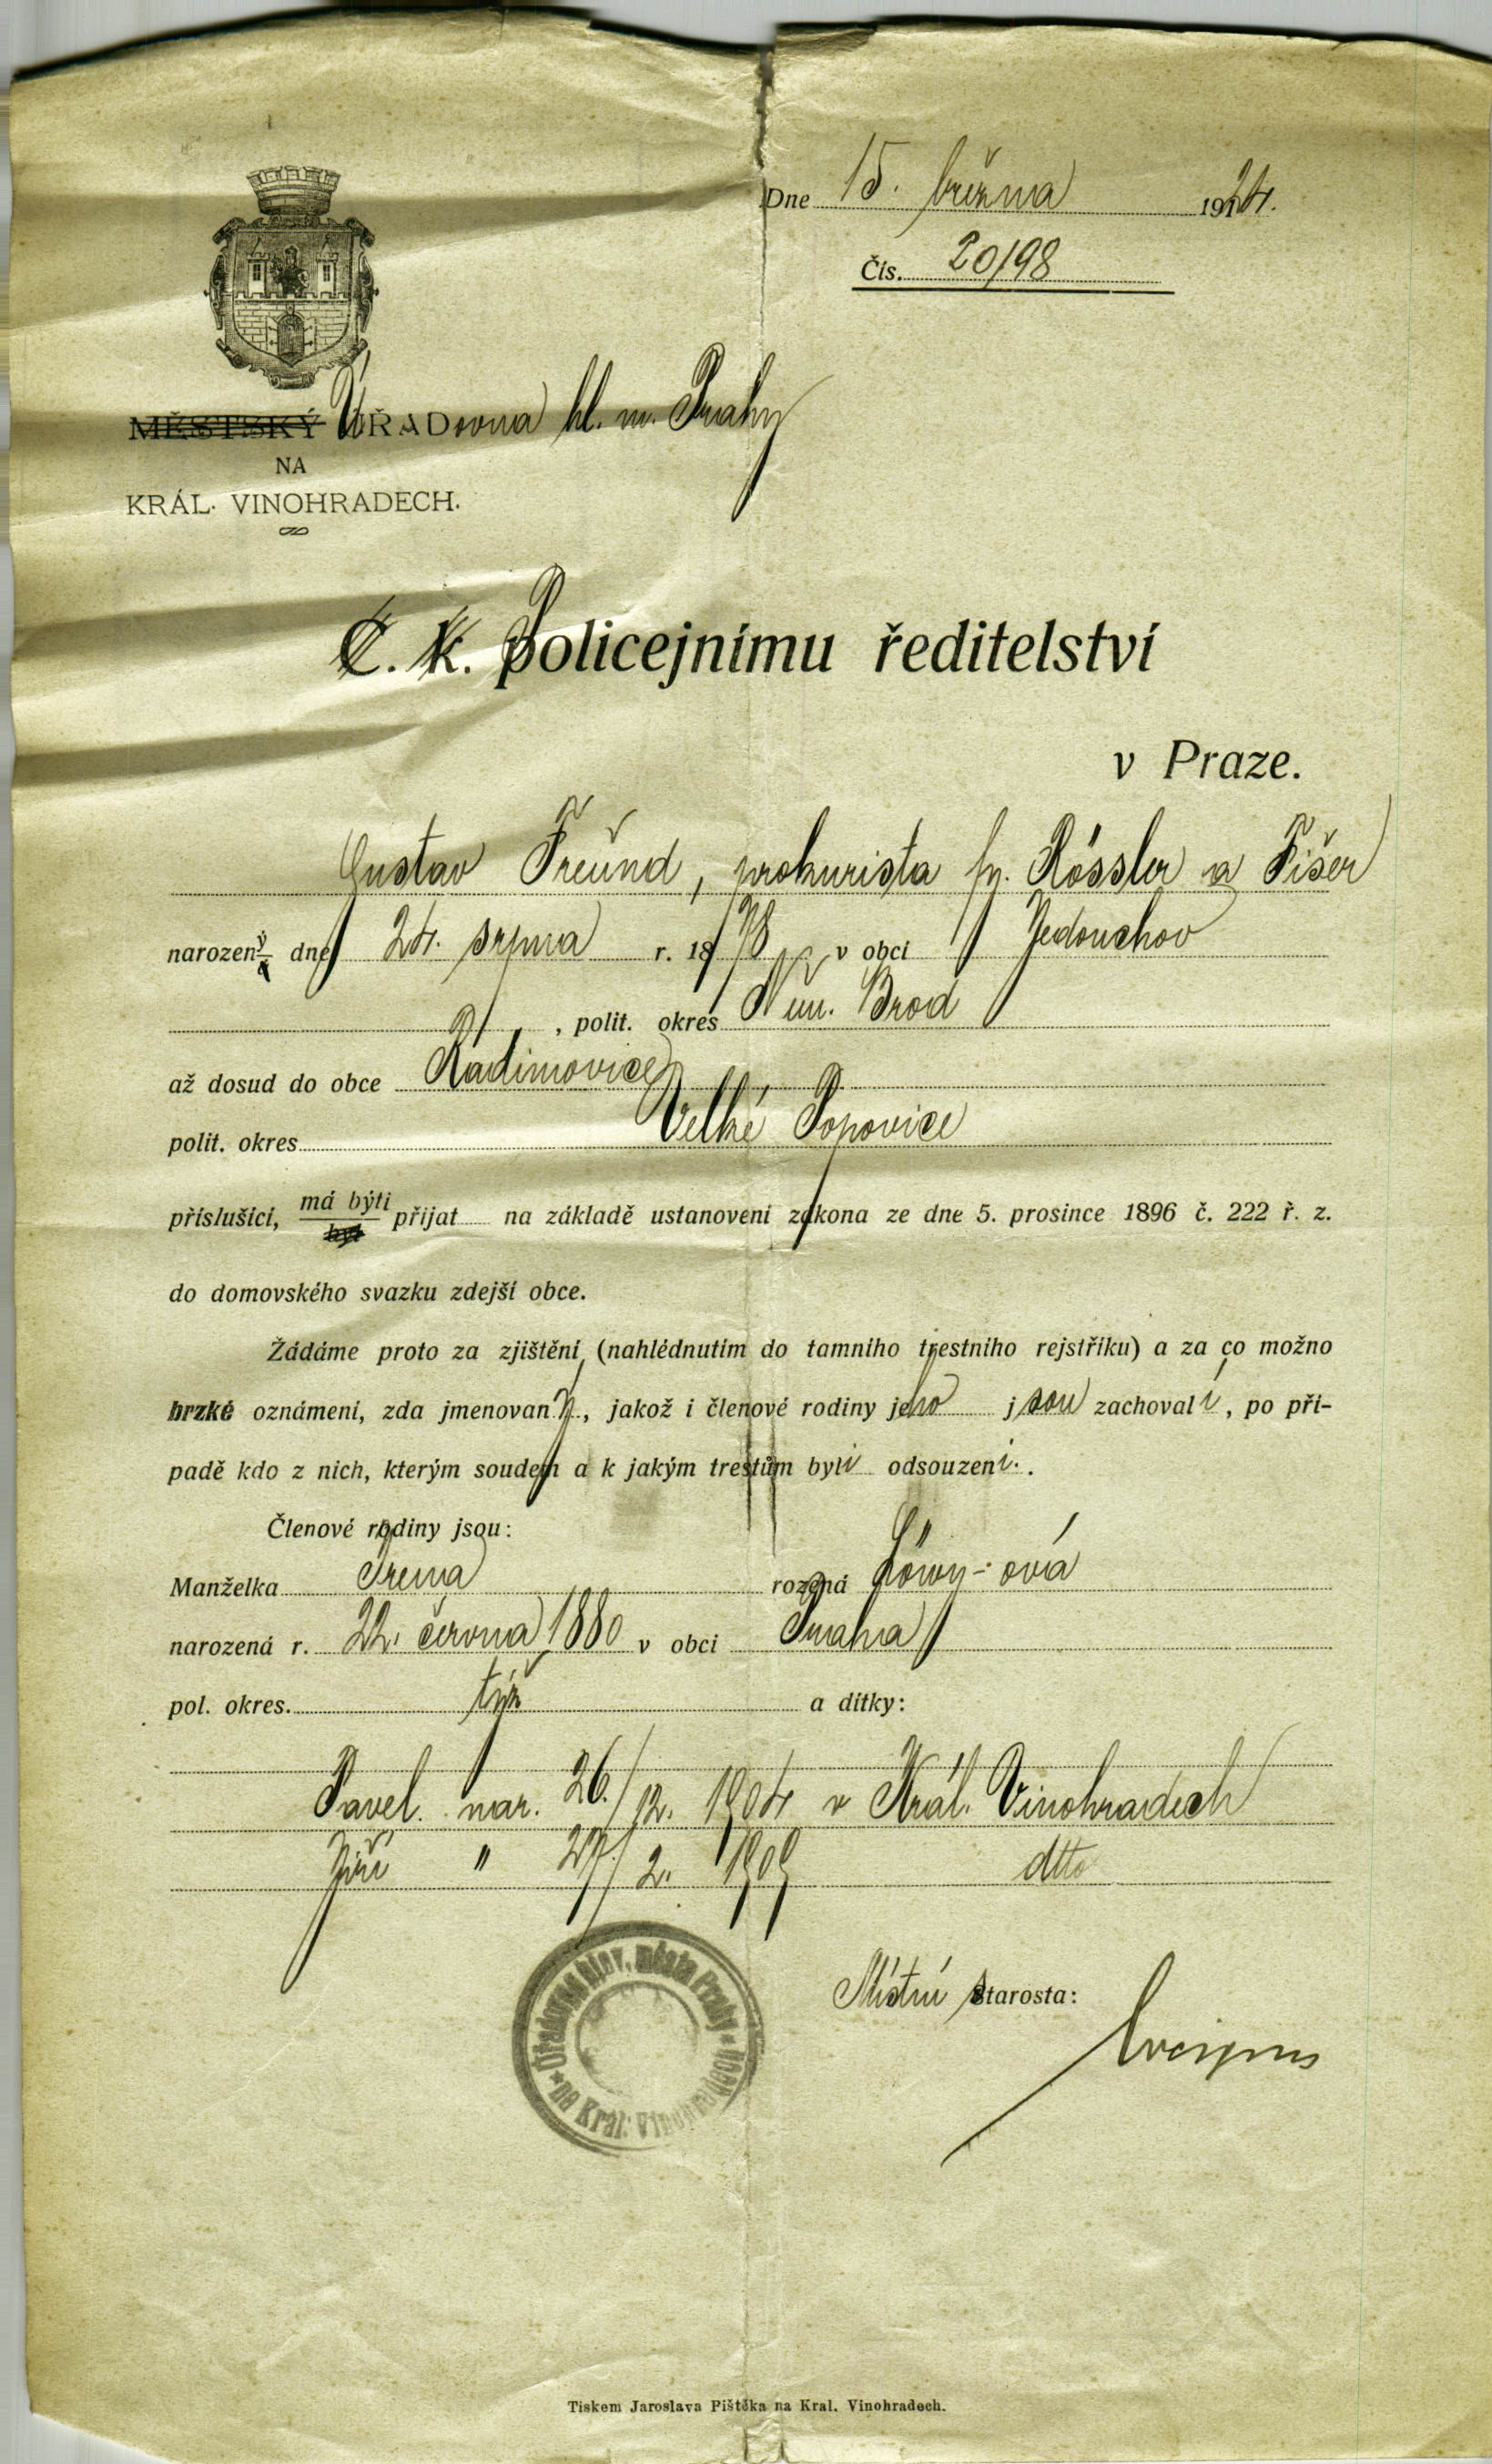 Dne 15. března 1924.
Čís. 20198
MĚSTSKÝ ÚŘADovna hl. m. Prahy
NA
KRÁL. VINOHRADECH.
C. k. Policejnímu ředitelství
v Praze.
Gustav Freund, prokurista fy. Rössler a Fišer
narozený dne 24. srpna r. 1878 v obci Jedouchov
, polit. okres Něm. Brod
až dosud do obce Radimovice
polit. okres Velké Popovice
příslušící, má býti
byl přijat na základě ustanovení zákona ze dne 5. prosince 1896 č. 222 ř. z.
do domovského svazku zdejší obce.
Žádáme proto za zjištění (nahlédnutím do tamního trestního rejstříku) a za co možno
brzké oznámení, zda jmenovaný, jakož i členové rodiny jeho jsou zachovalí, po pří-
padě kdo z nich, kterým soudem a k jakým trestům byli odsouzeni.
Členové rodiny jsou:
Manželka Irena rozená Löwy-ová
narozená r. 22. června 1880 v obci Praha
pol. okres týž a dítky:
Pavel nar. 26./12. 1904 v Král. Vinohradech
Jiří " 27/2. 1909 dtto
Místní starosta:
Úřadovna hlav. města Prahy
na Král. Vinohradech
Tiskem Jaroslava Pištěka na Kral. Vinohradech.